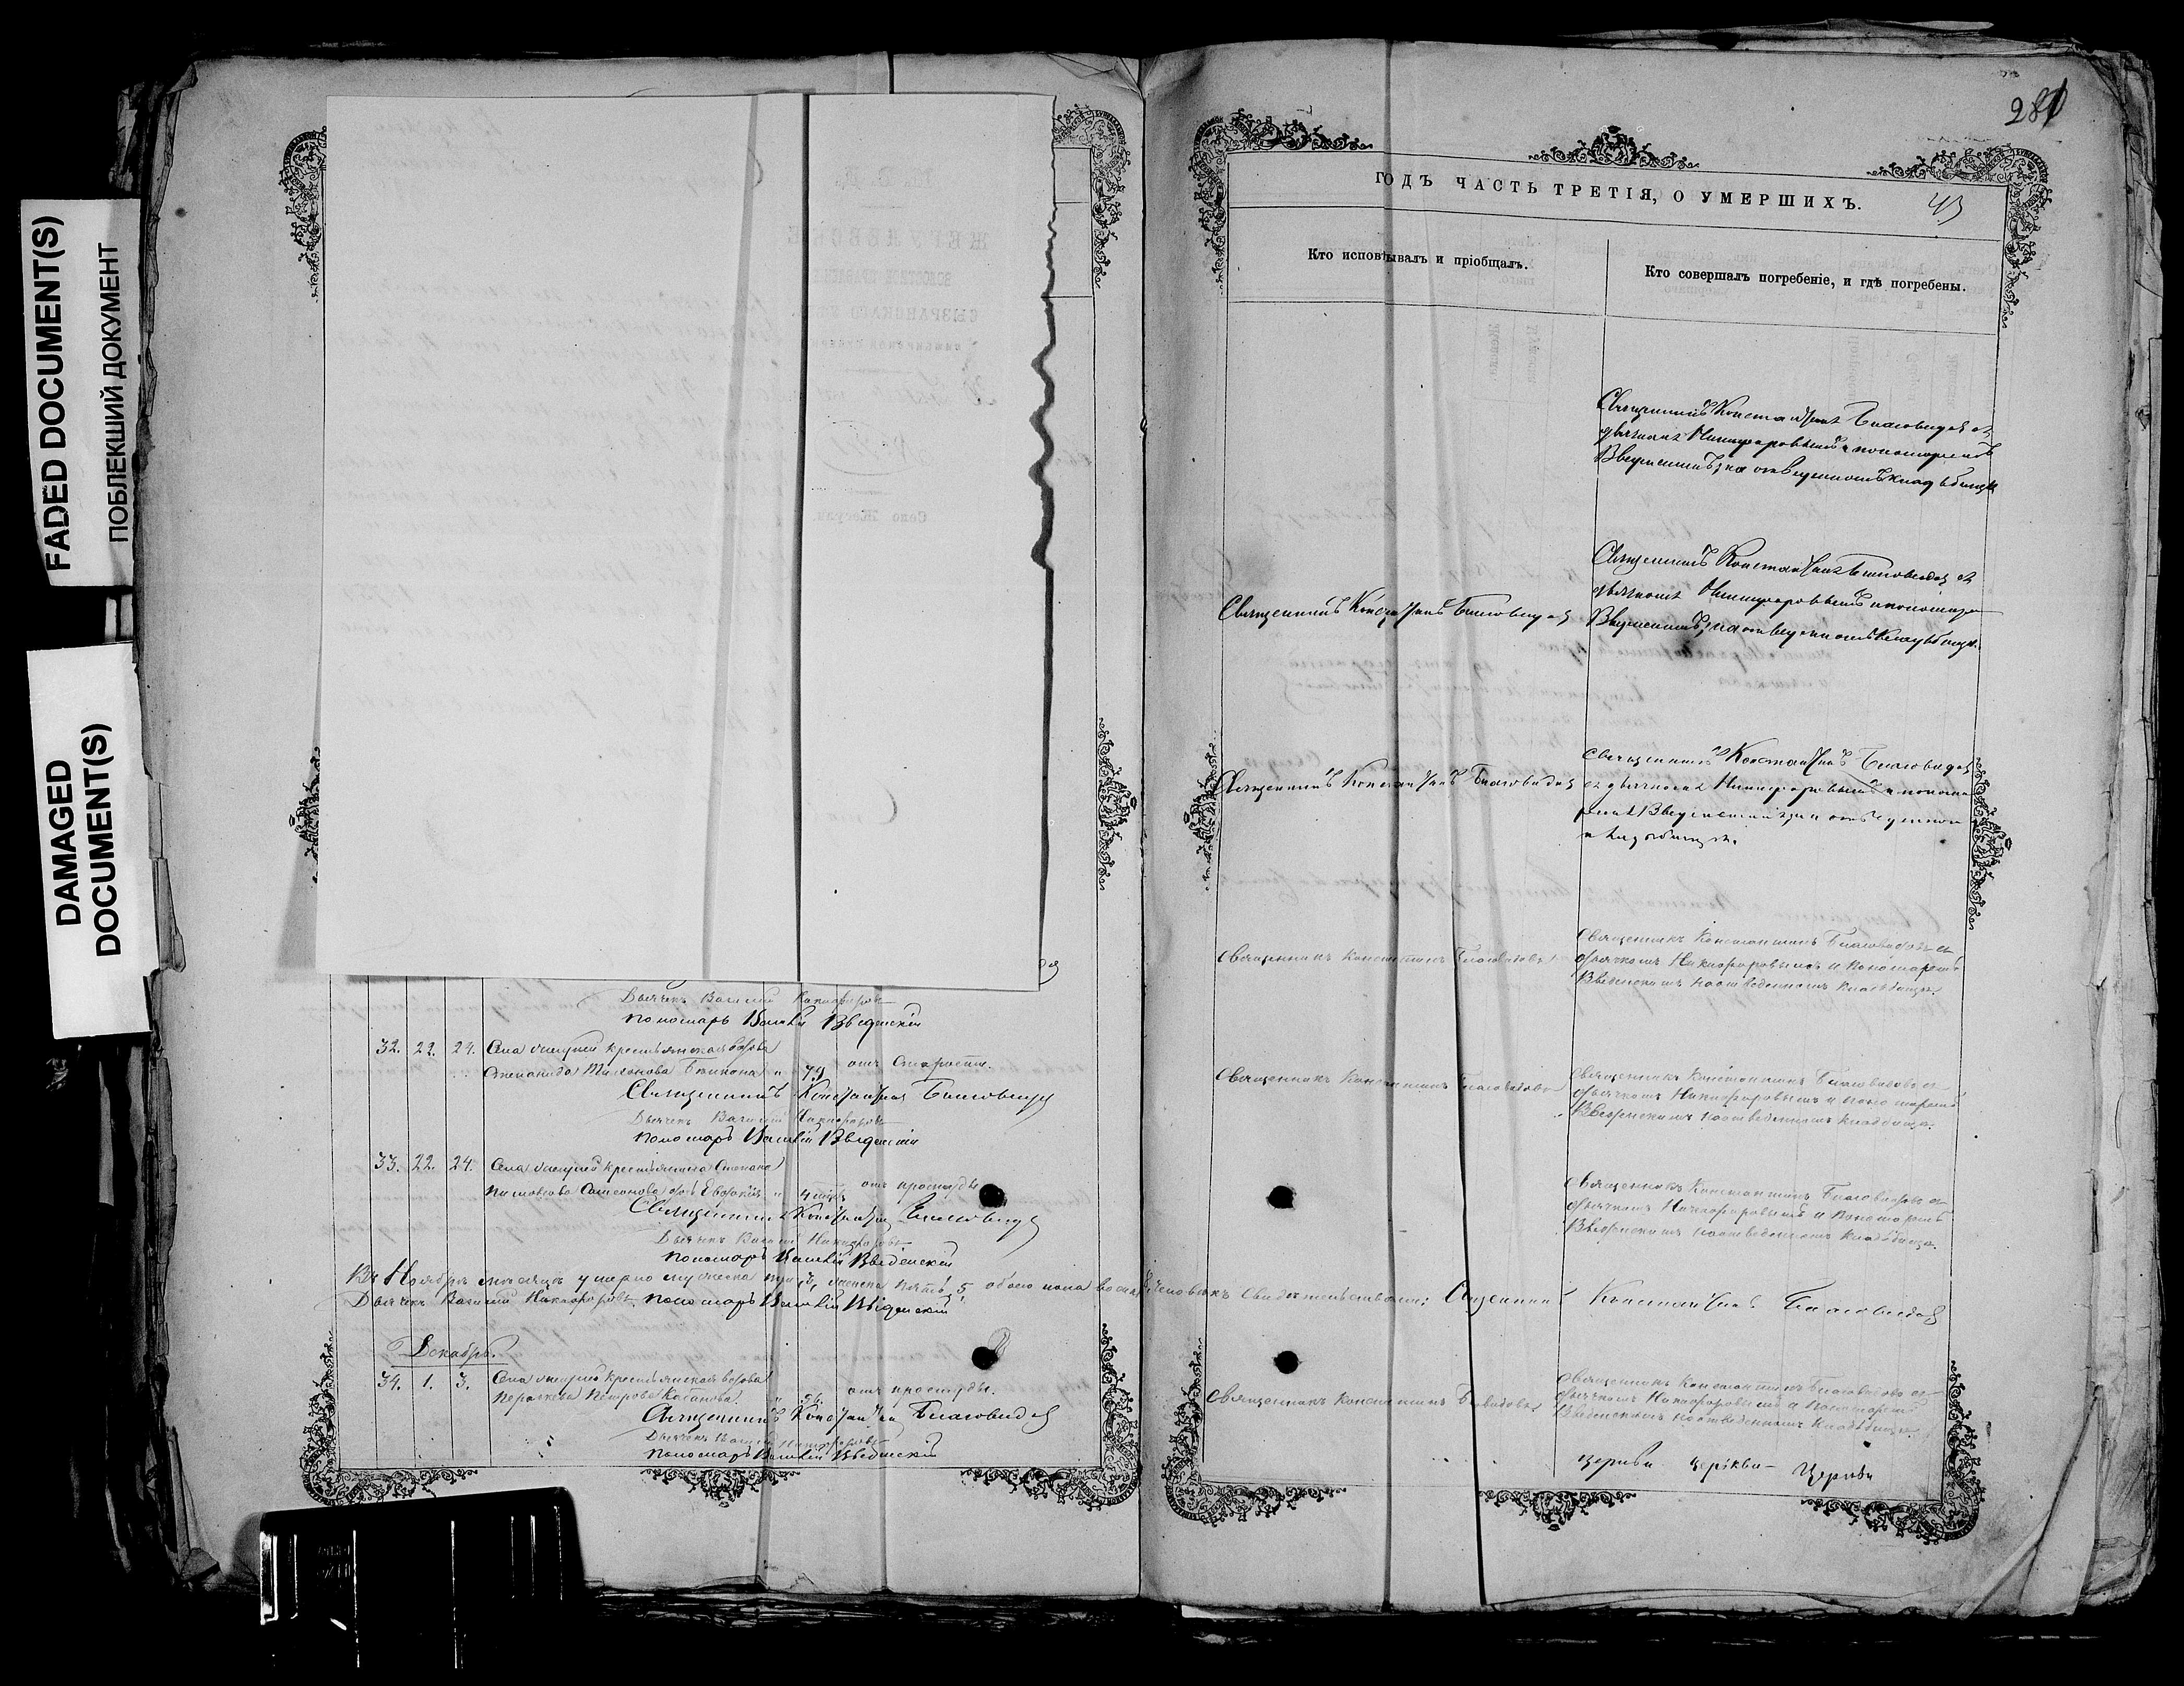 FADED DOCUMENT(S)
ПОБЛЕКШИЙ ДОКУМЕНТ
DAMAGED
DOCUMENT(S)
Дьячекъ Василій Никифоровъ
пономарь Введенскій
32. 22. 24. Села крестьянская вдова
Степанида 79 отъ старости.
Священникъ Константинъ Благовидовъ
Дьячекъ Василій Никифоровъ
пономарь Введенскій
33. 22. 24. Села крестьянина Степана
дочь Евдокія 4 отъ простуды
Священникъ Константинъ Благовидовъ
Дьячекъ Василій Никифоровъ
пономарь Введенскій
Въ Ноябрѣ мѣсяцѣ умерло мужеска три, 3, женска пять, 5, обоего пола восемь человѣкъ Свидѣтельствовали: Священникъ Константинъ Благовидовъ
Дьячекъ Василій Никифоровъ. пономарь Введенскій
Декабрь.
34. 1. 3. Села крестьянская вдова
Петрова 56. отъ простуды.
Священникъ Константинъ Благовидовъ
Дьячекъ Василій Никифоровъ
пономарь Введенскій
281
ГОДЪ ЧАСТЬ ТРЕТІЯ, О УМЕРШИХЪ.
43
Кто исповѣдывалъ и пріобщалъ.
Кто совершалъ погребеніе, и гдѣ погребены.
Священникъ Константинъ Благовидовъ съ
дьячкомъ Никифоровымъ и пономаремъ
Введенскимъ, на отведенномъ кладбищѣ
Священникъ Константинъ Благовидовъ съ
дьячкомъ Никифоровымъ и пономаремъ
Священникъ Константинъ Благовидовъ
Введенскимъ, на отведенномъ кладбищѣ.
Священникъ Константинъ Благовидовъ
Священникъ Константинъ Благовидовъ
съ дьячкомъ Никифоровымъ и понома
ремъ Введенскимъ на отведенном
ъ кладбищѣ.
Священникъ Константинъ Благовидовъ
Священникъ Константинъ Благовидовъ съ
дьячкомъ Никифоровымъ и пономаремъ
Введенскимъ на отведенномъ кладбищѣ.
Священникъ Константинъ Благовидовъ
Священникъ Константинъ Благовидовъ съ
дьячкомъ Никифоровымъ и пономаремъ
Введенскимъ на отведенномъ кладбищѣ.
Священникъ Константинъ Благовидовъ съ
дьячкомъ Никифоровымъ и пономаремъ
Введенскимъ на отведенномъ кладбищѣ.
Священникъ Константинъ Благовидовъ
Священникъ Константинъ Благовидовъ съ
дьячкомъ Никифоровымъ и пономаремъ
Введенскимъ на отведенномъ кладбищѣ.
церкви церкви Церкви